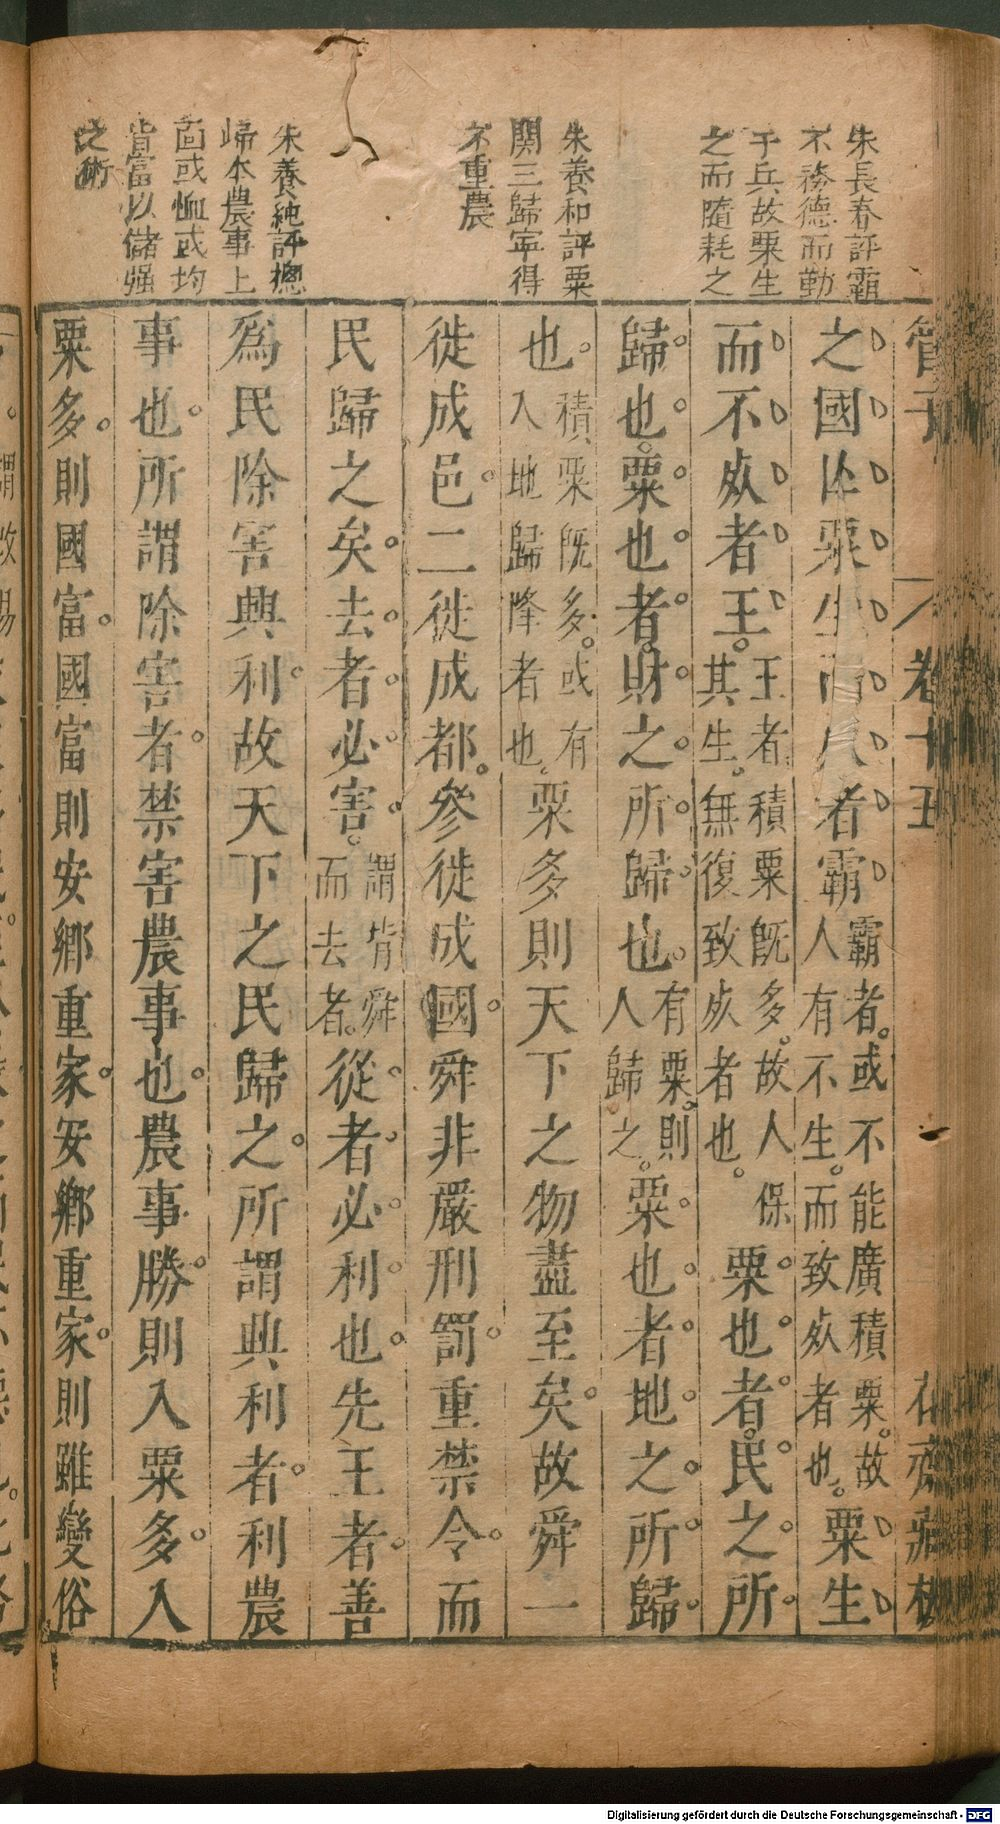 朱長春評霸
不務德而勤
于兵故粟生
之而隨耗之
朱養和評粟
關三歸寧得
不重農
朱養純評摠
歸本農事上
面或恤或均
皆富以儲強
之術
管子
卷十五
之國也粟生而死者霸霸者或不能廣積粟故人有不生而致死者也粟生
而不死者王王者積粟既多故人保其生無復致死者也粟也者民之所
歸也粟也者財之所歸也有粟則人歸之粟也者地之所歸
也積粟既多或有入地歸降者也粟多則天下之物盡至矣故舜一
徙成邑二徙成都參徙成國舜非嚴刑罰重禁令而
民歸之矣去者必害謂背舜而去者從者必利也先王者善
為民除害興利故天下之民歸之所謂興利者利農
事也所謂除害者禁害農事也農事勝則入粟多入
粟多則國富國富則安鄉重家安鄉重家則雖變俗
Digitalisierung gefördert durch die Deutsche Forschungsgemeinschaft - DFG